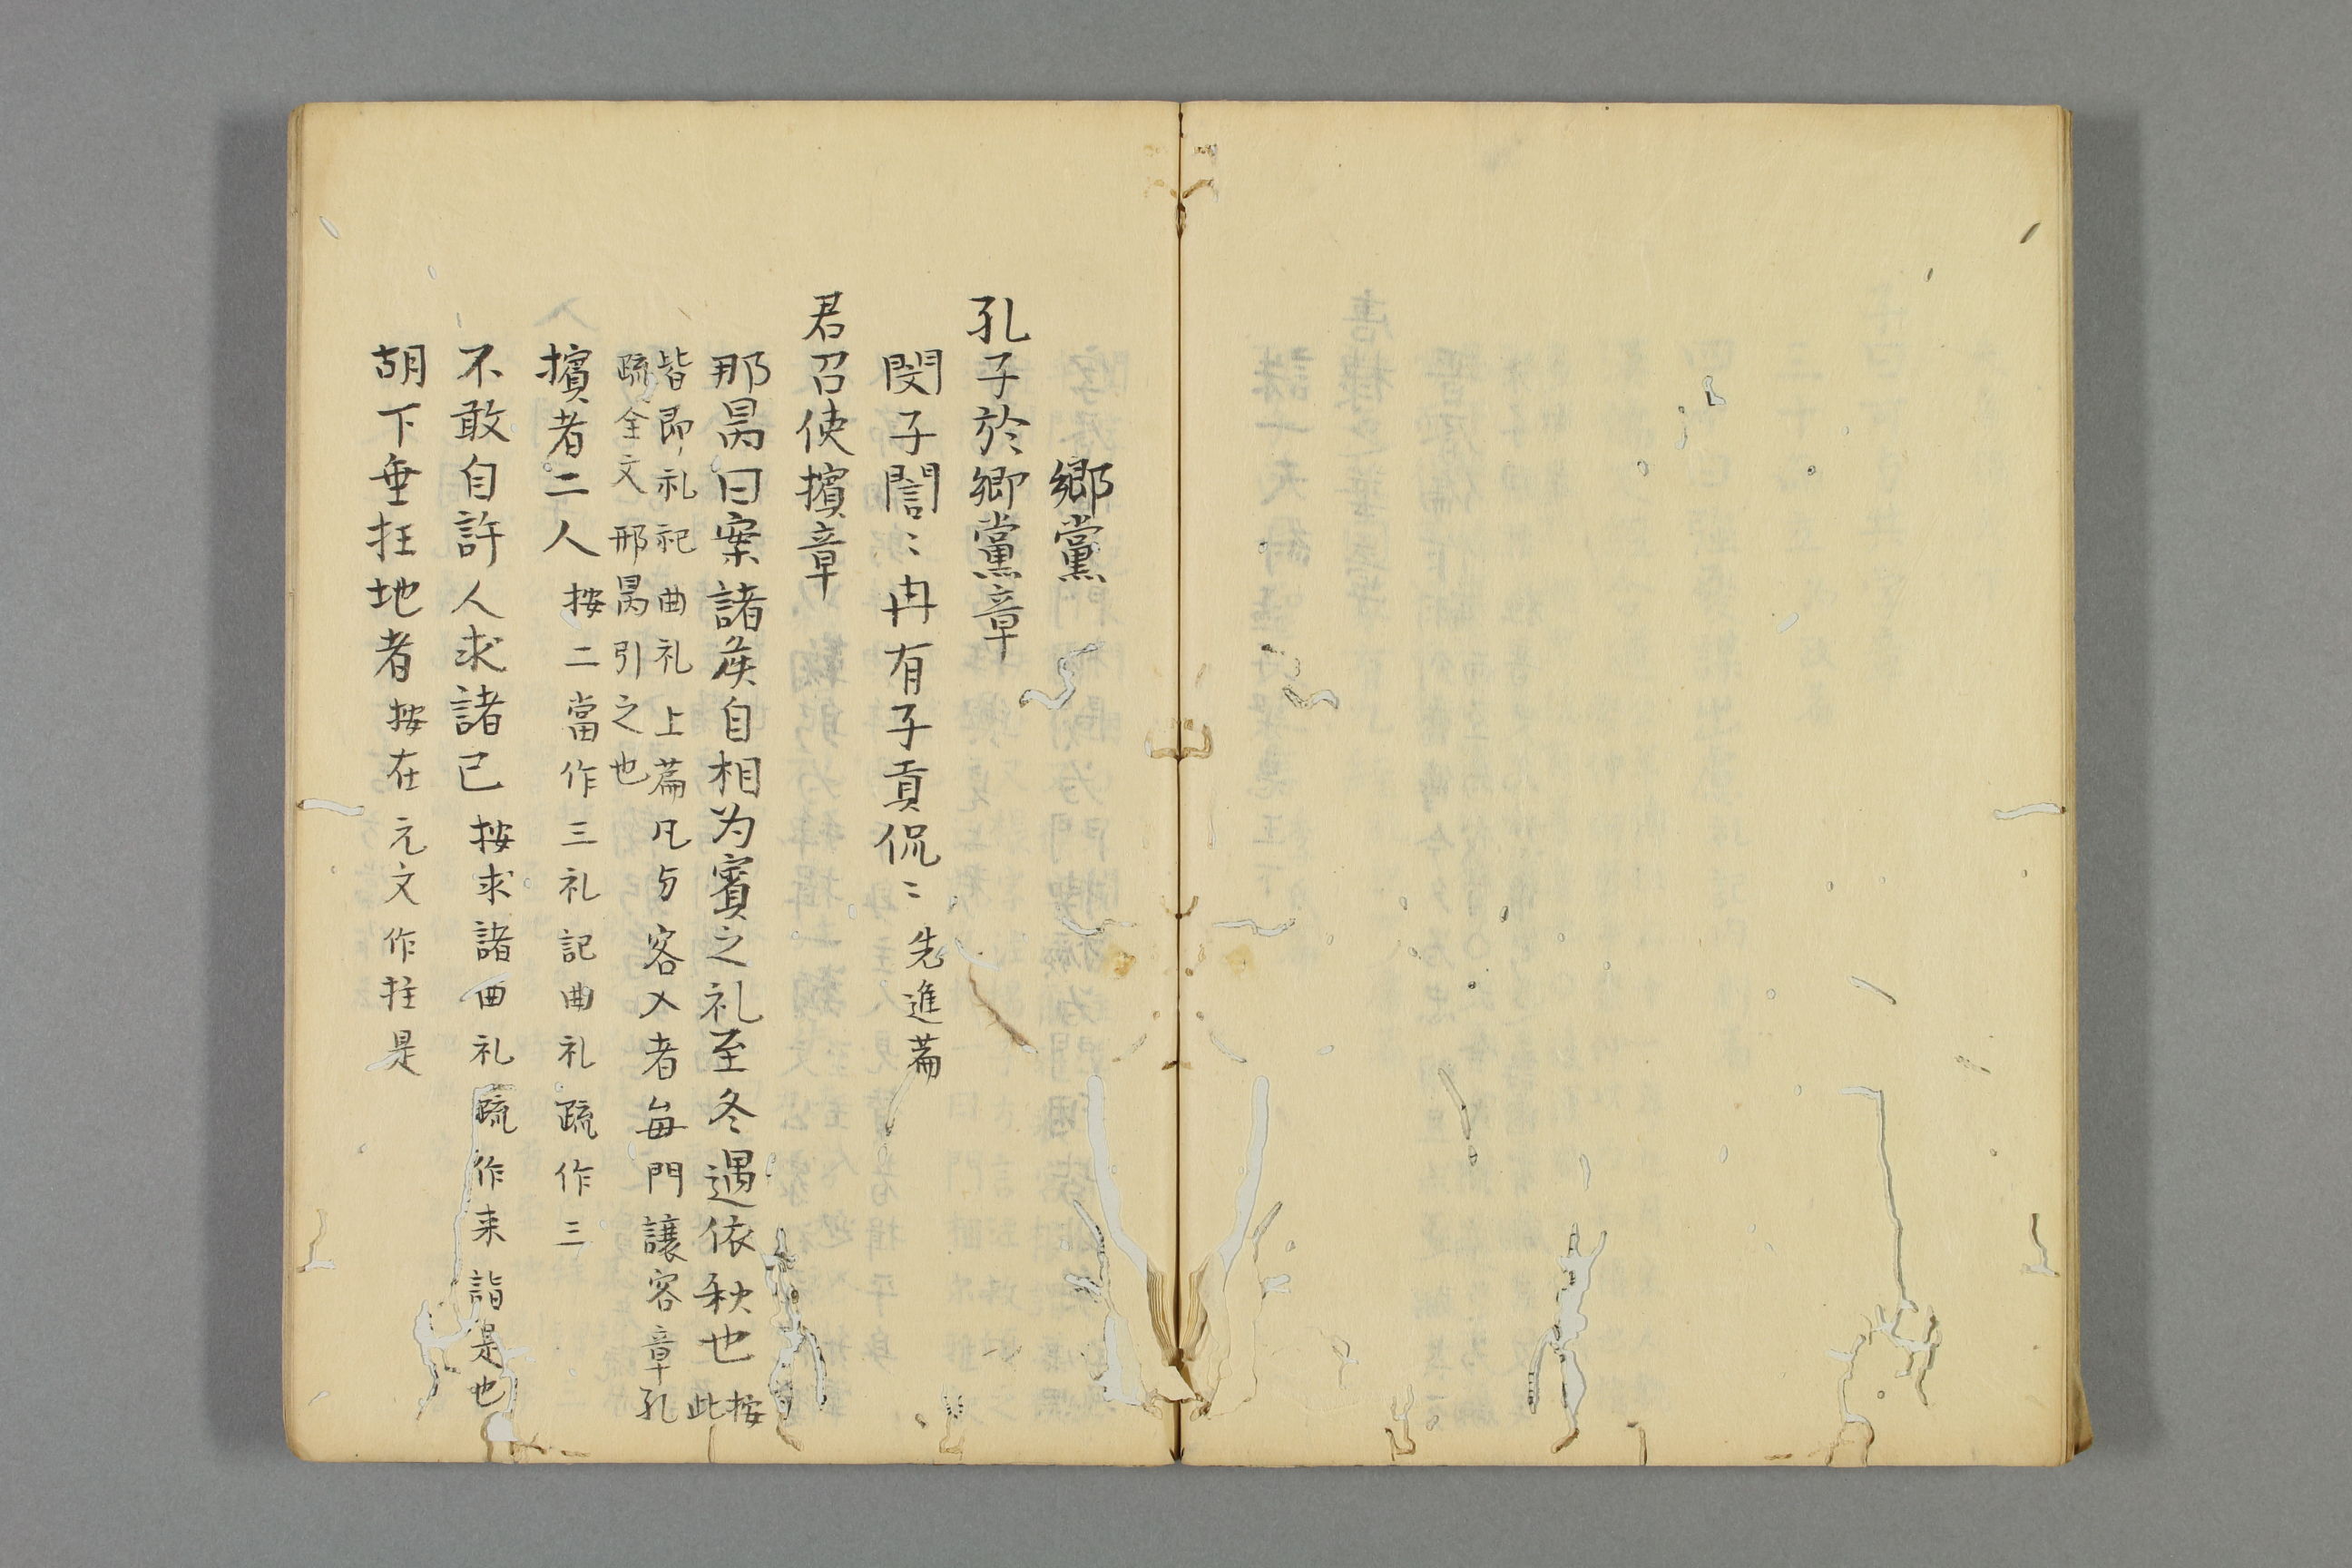 鄉黨
孔子於鄉黨章
閔子誾〻冉有子貢侃〻先進篇
君召使擯章
那昺曰案諸侯自相为賓之礼至冬遇依秋也按此
皆即礼祀曲礼上篇凡与客入者每門讓容章孔
疏全文邢昺引之也
擯者二人按二當作三礼記曲礼疏作三
不敢自許人求諸已按求諸曲礼疏作来詣是也
胡下垂抂地者按在元文作拄是